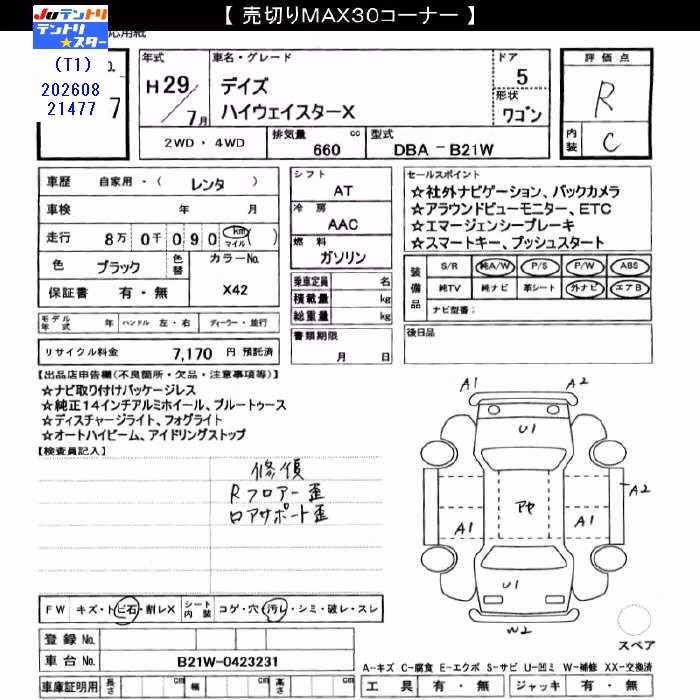 【 売切りMAX30コーナー 】
JUテントリ
テントリ
★スター
応用紙
(T1)
202608
21477
No.
7
年式
H 29/7月
車名・グレード
デイズ
ハイウェイスターX
ドア
5
形状
ワゴン
評価点
R
内装
C
2WD・4WD
排気量
660
cc
型式
DBA-B21W
車歴 自家用・( レンタ )
車検 年 月
走行 8万 0千 0 9 0 km マイル ( )
色 ブラック 色替
カラーNo.
X42
保証書 有・無
シフト
AT
冷房
AAC
燃料
ガソリン
乗車定員 名
積載量 kg
総重量 kg
セールスポイント
☆社外ナビゲーション、バックカメラ
☆アラウンドビューモニター、ETC
☆エマージェンシーブレーキ
☆スマートキー、プッシュスタート
装備品
S/R 純A/W P/S P/W ABS
純TV 純ナビ 革シート 外ナビ エアB
ナビ型番:
モデル年式 年 ハンドル 左・右 ディーラー・並行
書類期限
月 日
後日品
リサイクル料金 7,170 円 預託済
【出品店申告欄(不良箇所・欠品・注意事項等)】
☆ナビ取り付けパッケージレス
☆純正14インチアルミホイール、ブルートゥース
☆ディスチャージライト、フォグライト
☆オートハイビーム、アイドリングストップ
【検査員記入】
修復
Rフロアー歪
ロアサポート歪
A1
A2
U1
A2
A1
A1
U1
W2
スペア
FW キズ・トビ石・削レX
シート内装
コゲ・穴・汚レ・シミ・破レ・スレ
登録No.
車台No.
B21W-0423231
車庫証明用 長さ cm 幅 cm 高さ cm
A-キズ C-腐食 E-エクボ S-サビ U-凹ミ W-補修 XX-交換済
工具 有・無 ジャッキ 有・無